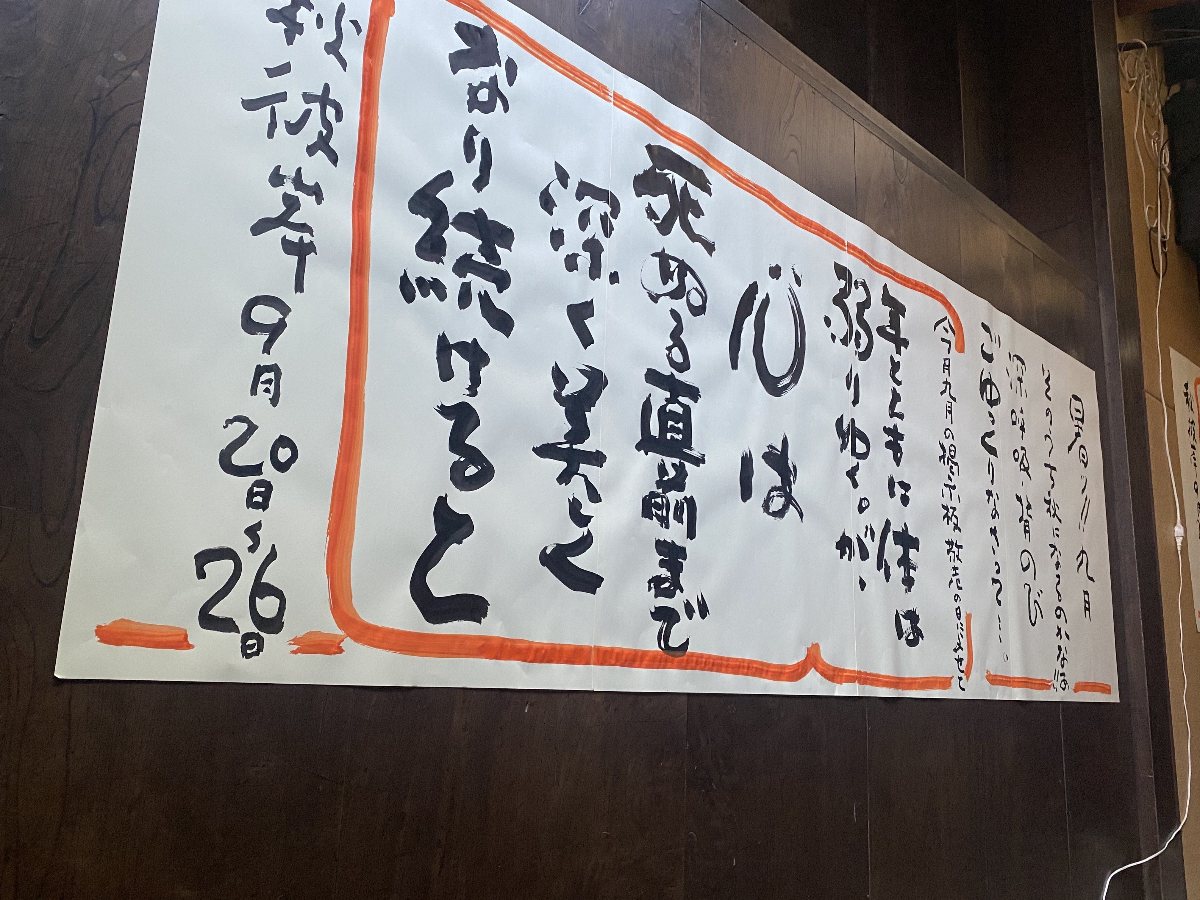 九月
そのうち秋になるのかなぁ!!
深呼吸 背のび
ごゆっくりなさって…。
今月九月の掲示板
年とともに体は
弱りゆく。が、
心は
死ぬる直前まで
深く美しく
なり続けると
秋彼岸 9月20日〜26日